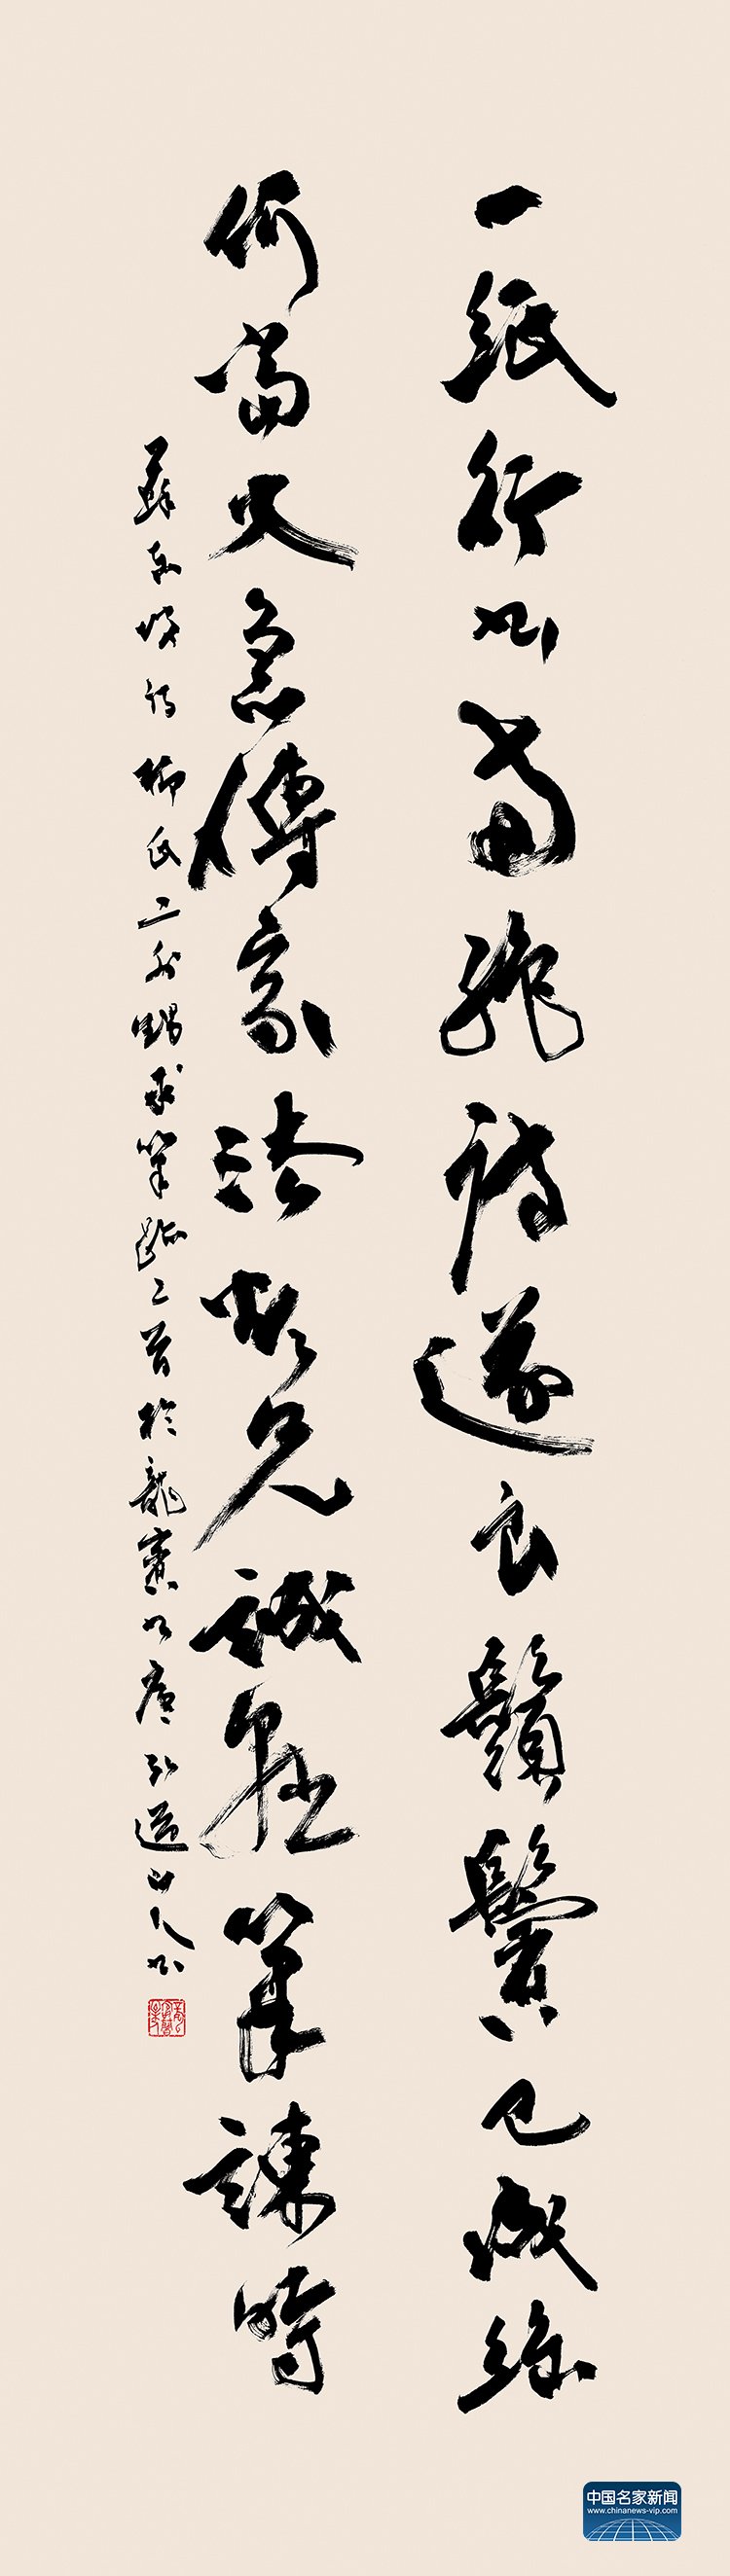 一紙行書兩絕詩遂良鬚鬢已成絲
何當火急傳家法欲見誠懸筆諫時
蘇東坡詩柳氏二外甥求筆跡二首於龍弘道山人書
中国名家新闻
www.chinanews-vip.com